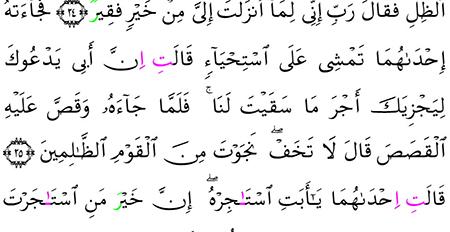 ٱلظِّلِّ فَقَالَ رَبِّ إِنِّي لِمَآ أَنزَلْتَ إِلَيَّ مِنْ خَيْرٍ فَقِيرٌ ٢٤ فَجَآءَتْهُ
إِحْدَىٰهُمَا تَمْشِى عَلَى ٱسْتِحْيَآءٍ قَالَتِ اِنَّ أَبِى يَدْعُوكَ
لِيَجْزِيَكَ أَجْرَ مَا سَقَيْتَ لَنَا ۚ فَلَمَّا جَآءَهُۥ وَقَصَّ عَلَيْهِ
ٱلْقَصَصَ قَالَ لَا تَخَفْ ۖ نَجَوْتَ مِنَ ٱلْقَوْمِ ٱلظَّٰلِمِينَ ٢٥
قَالَتِ اِحْدَىٰهُمَا يَٰٓأَبَتِ ٱسْتَـٰٔجِرْهُ ۖ إِنَّ خَيْرَ مَنِ ٱسْتَـٰٔجَرْتَ